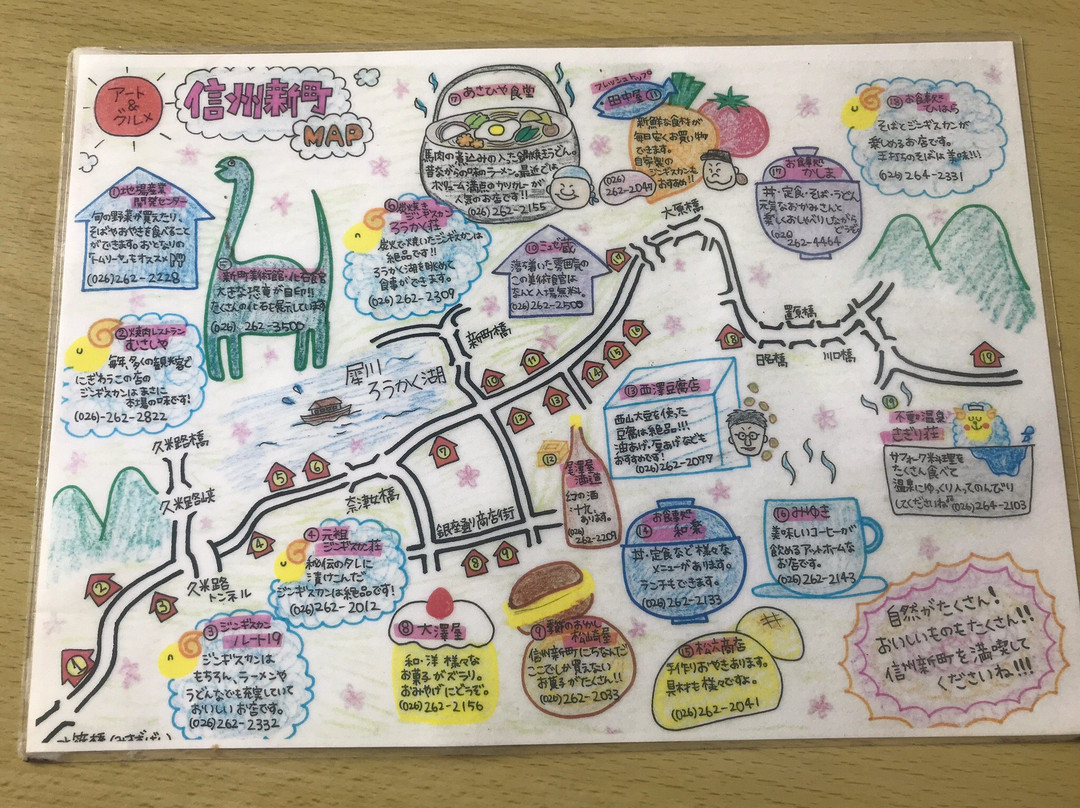 アート
&
グルメ
信州新町
MAP
①地場産業
開発センター
旬の野菜が買えたり、
そばやおやきを食べること
ができます。おとなりの
(026)-262-2228
⑤
新町美術館・化石館
大きな恐竜が目印！！
たくさんの化石を展示しています。
(026)-262-3500
②焼肉レストラン
むさしや
毎年、多くの観光客で
にぎわうこの店の
ジンギスカンはまさに
本場の味です!
(026)-262-2822
⑥炭火焼き
ジンギスカン
ろうかく荘
炭火で焼いたジンギスカンは
絶品です!!
ろうかく湖を眺めて
食事ができます。
(026)262-2309
⑦あさひや食堂
馬肉の煮込みの入った鍋焼きうどん。
昔ながらの味のラーメン。最近では
ボリューム満点のカツカレーが
人気のお店です!!
(026)262-2155
フレッシュトップ
田中屋⑪
新鮮な食材が
毎日安くお買い物
できます。
自家製の
ジンギスカンも
おすすめ!!
(026)
262-2047
⑱お食事処
そばとジンギスカンが
楽しめるお店です。
手打ちのそばは美味!!!
(026)264-2331
⑰
お食事処
かしま
丼・定食・そば・うどん
元気なおかみさんと
楽しくおしゃべりしながら
どうぞ
(026)
262-4464
⑩ミュゼ蔵
落ち着いた雰囲気の
この美術館は
なんと入場無料。
(026)262-2500
大原橋
置原橋
日尾橋
川口橋
新町橋
犀川
ろうかく湖
久米路橋
久米路峡
奈津女橋
銀座通り商店街
久米路
トンネル
1
2
3
4
5
6
7
8
9
10
11
12
13
14
15
16
17
18
19
⑬西澤豆腐店
西山大豆を使った
豆腐は絶品!!!
油あげ・厚あげなども
おすすめです!
(026)262-2077
⑫
尾澤屋
酒造
幻の酒
十九
あります。
(026)
262-2209
⑲
不動温泉
さぎり荘
サフォーク料理を
たくさん食べて
温泉にゆっくり入ってのんびり
してくださいね
(026)264-2103
④元祖
ジンギスカン荘
秘伝のタレに
漬けこんだ
ジンギスカンは絶品です!
(026)262-2012
⑭
お食事処
和葉
丼・定食など様々な
メニューがあります。
ランチもできます。
(026)262-2133
⑯みゆき
美味しいコーヒーが
飲めるアットホームな
お店です。
(026)262-2143
③ジンギスカン
ルート19
ジンギスカンは
もちろん、ラーメンや
うどんなども充実していて
おいしいお店です。
(026)262-2332
⑧大澤屋
和・洋 様々な
お菓子がズラリ。
おみやげにどうぞ。
(026)262-2156
⑨季節のおかし
松崎屋
信州新町にちなんだ
ここでしか買えない
お菓子がたくさん!!
(026)262-2033
⑮松六商店
手作りおやきあります。
具材も様々ですよ。
(026)262-2041
自然がたくさん!
おいしいものもたくさん!!
信州新町を満喫して
くださいね!!!